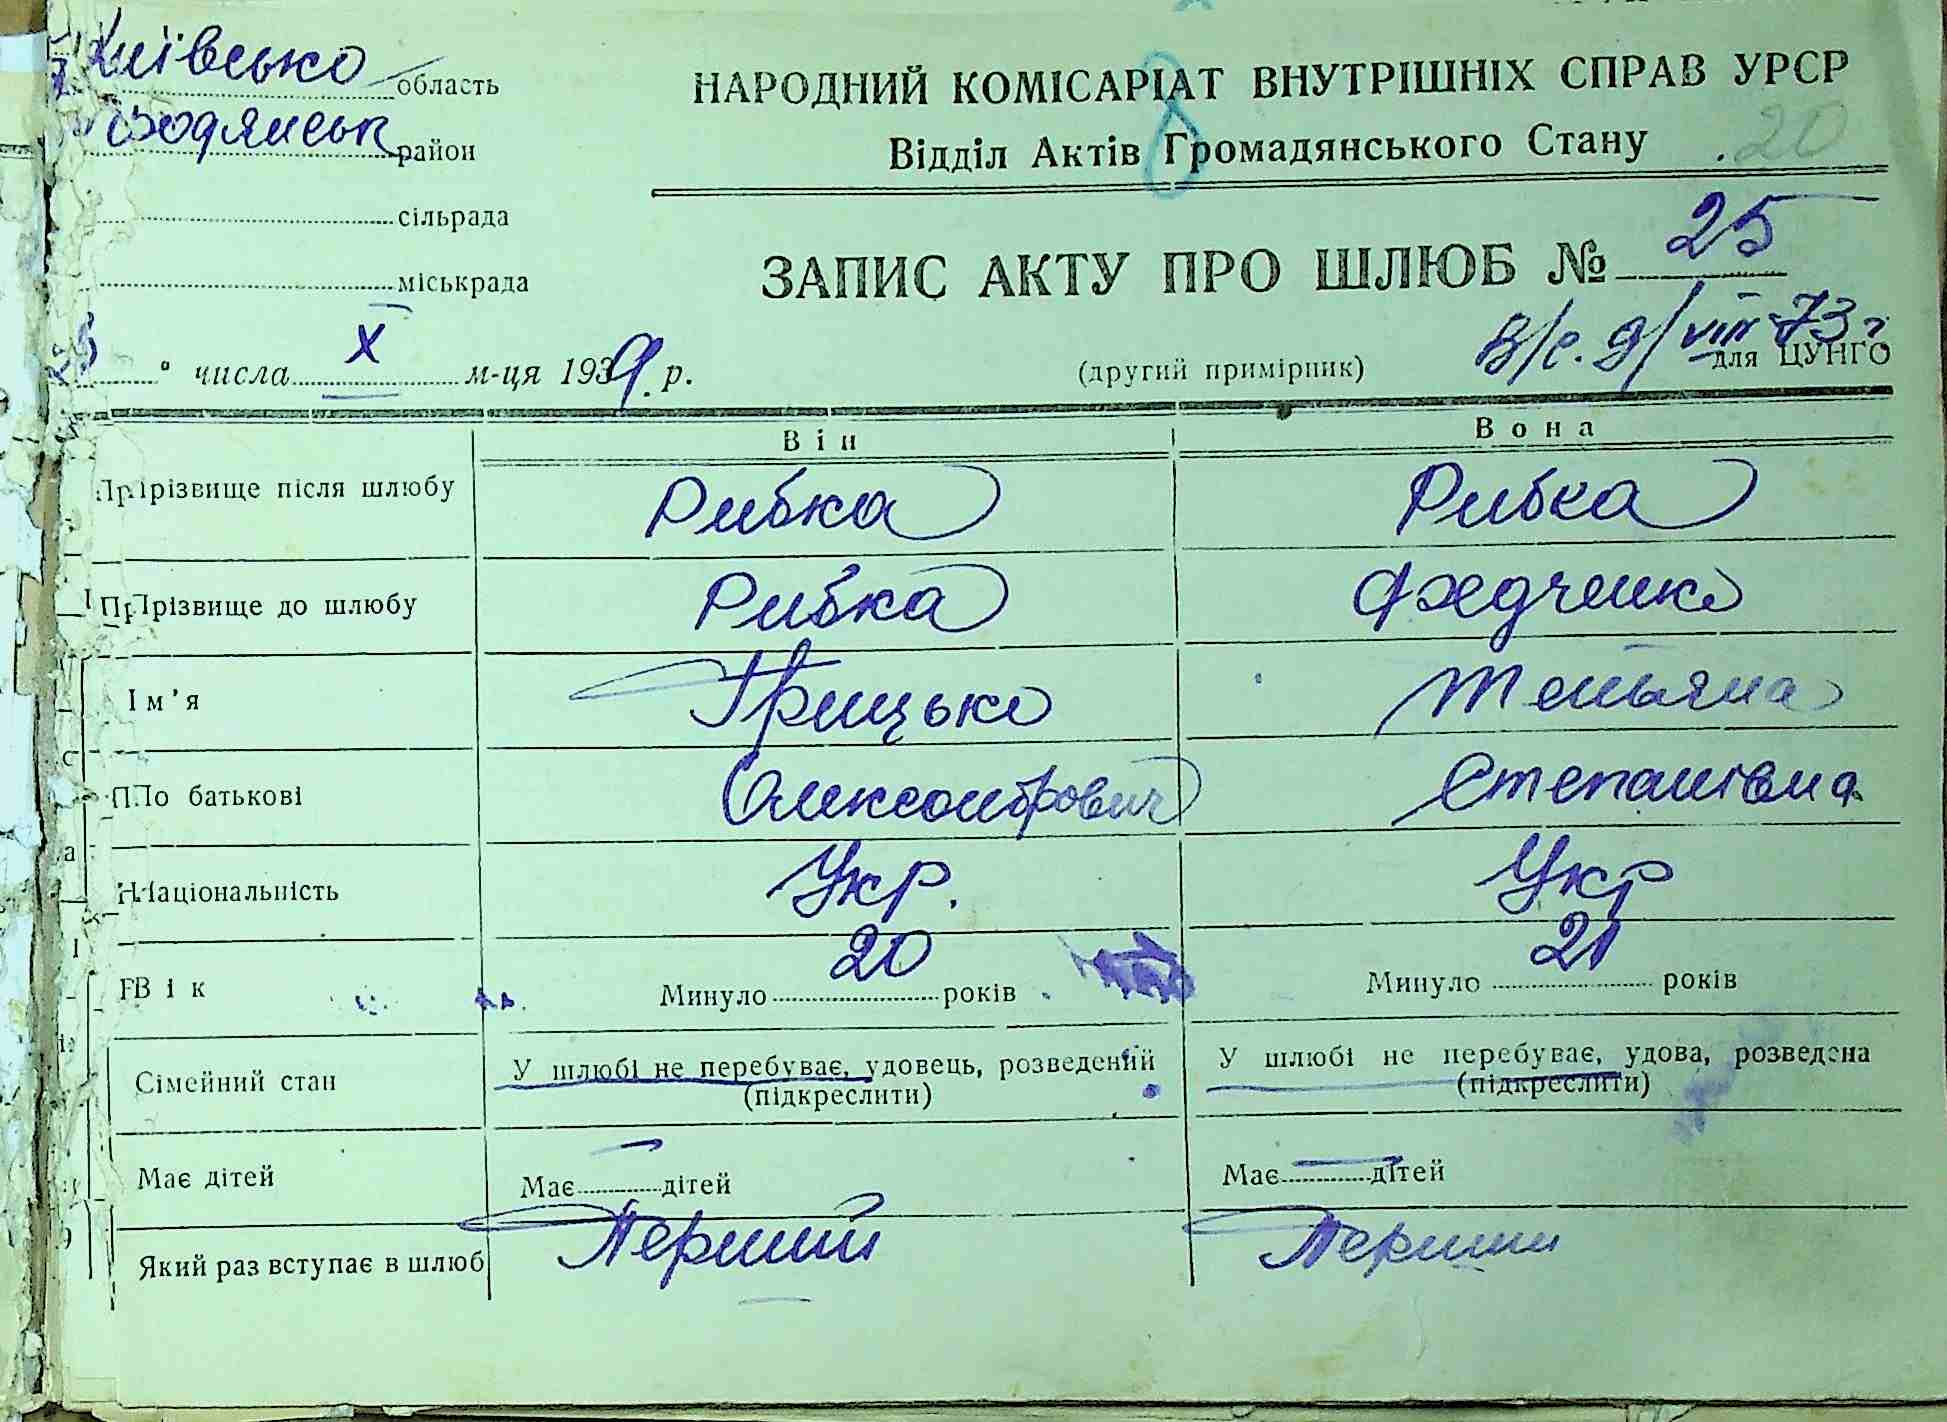 Київсько область
Бодянськ район
сільрада
міськрада
НАРОДНИЙ КОМІСАРІАТ ВНУТРІШНІХ СПРАВ УРСР
Відділ Актів Громадянського Стану
20
ЗАПИС АКТУ ПРО ШЛЮБ № 25
25 " числа X м-ця 1939 р.
(другий примірник)
в/с. 9/VIII-73 г
для ЦУНГО
Він Вона
Прізвище після шлюбу Рибка Рибка
Прізвище до шлюбу Рибка Федченко
Ім'я Грицько Тетьяна
По батькові Олександрович Степанівна
Національність Укр. Укр
Вік Минуло 20 років Минуло 21 років
Сімейний стан У шлюбі не перебуває, удовець, розведений У шлюбі не перебуває, удова, розведена
(підкреслити) (підкреслити)
Має дітей Має — дітей Має — дітей
Який раз вступає в шлюб Перший Перший